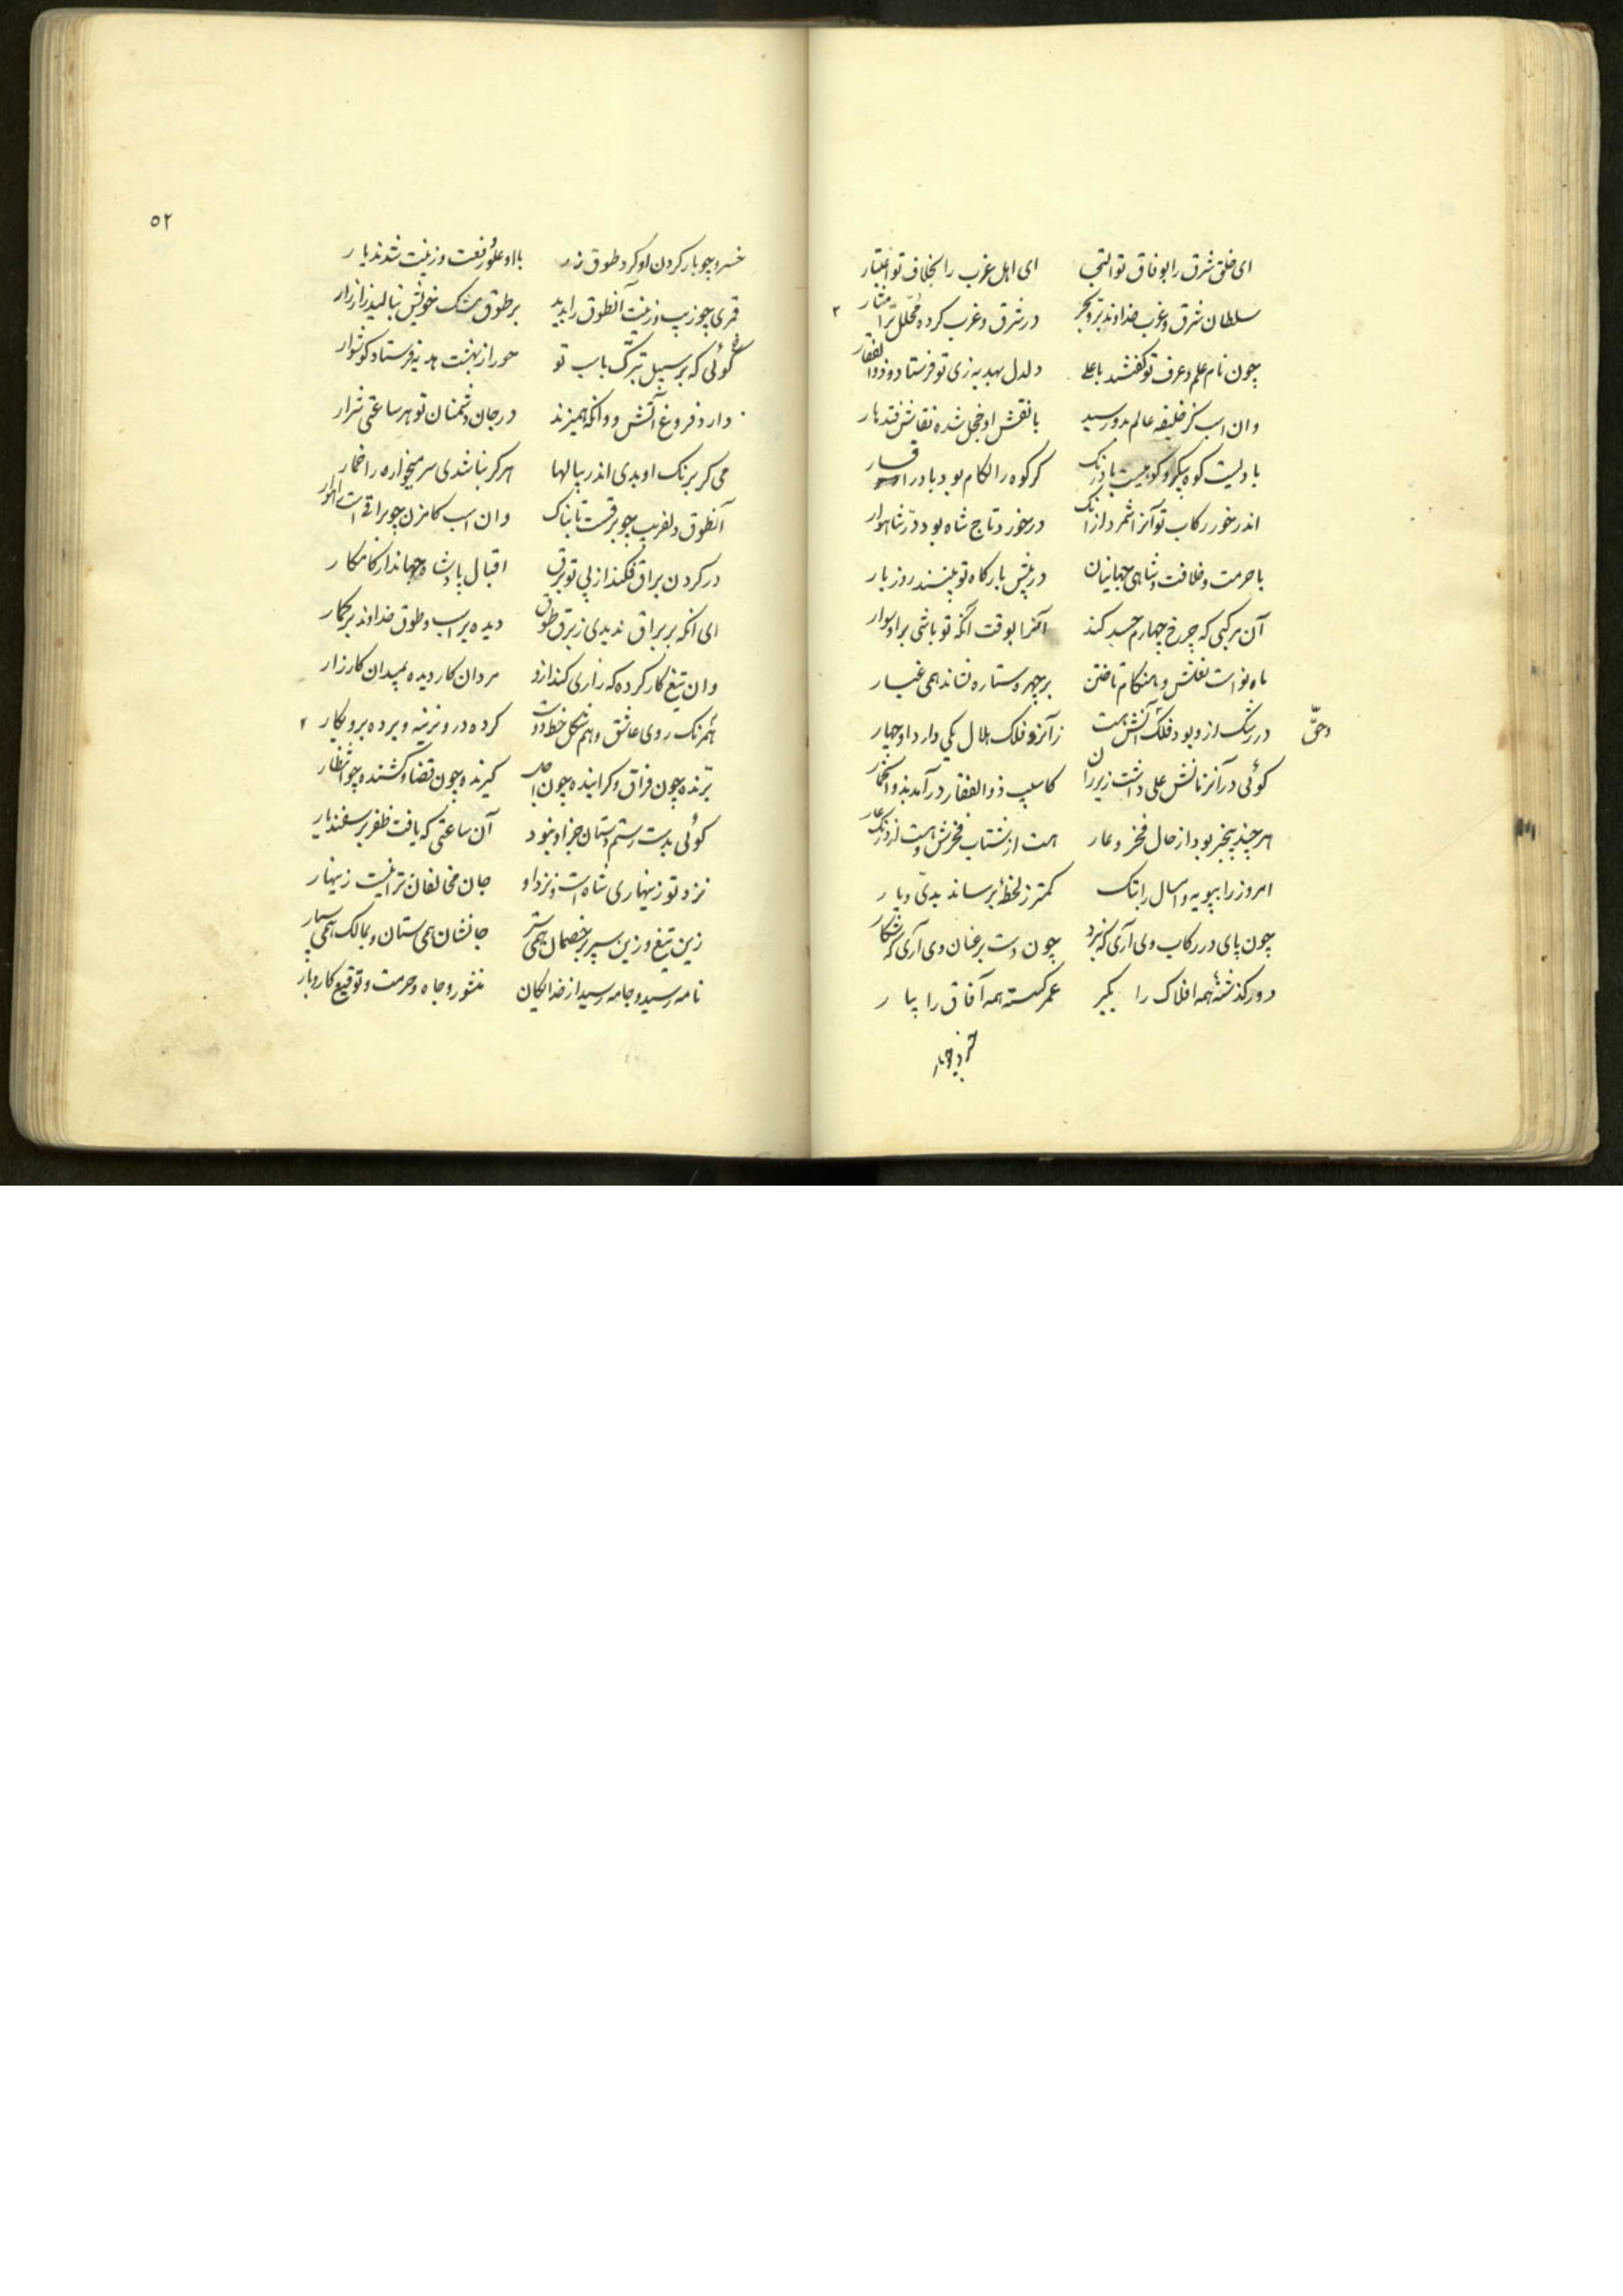 ای خلق شرق را بوفاق تو التجا ای اهل غرب را بخلاف تو اعتبار
سلطان شرق و غرب خداوند بر و بحر در شرق و غرب کرده
چون نام علم و عرف تو گفتند با علی دلدل بهدیه زی تو فرستاد و ذوالفقار
وان اسب کز خلیفه عالم بدو رسید با نقش او خجل شده نقاش قندهار
بادیست کوه پیکر و کوهیست باد رنگ گر کوه را لگام بود باد را فسار
اندر خور رکاب تو آنرا شمرد از آنک در خورد تاج شاه بود در شاهوار
با حرمت و خلافت و شاهی جهانیان در پیش بارگاه تو بینند روز بار
آن مرکبی که چرخ چهارم حسد کند آنرا بوقت آنکه تو باشی بر او سوار
ماه نو است نعلش و هنگام تاختن بر چهر و ستاره نشاند همی غبار
در رشک ازو بود فلک آتش زانرو فلک هلال یکی دارد او چهار
وحق
گوئی در آنزمانش علی داشت زیر ران کاسیب ذوالفقار در آمد بذو
هر چند بیخبر بود از حال فخر و عار هست از شتاب فخرش و هست از درنگ عار
امروز را بپویه و امسال را بتک کمتر ز لحظهٔ برساند بدی و پار
چون پای در رکاب وی آری که نبرد چون دست بر عنان وی آری که شکار
دور گذشتهٔ همه افلاک را بگیر عمر گسسته همه آفاق را بیار
خسرو چو بار
٥٢
خسرو چو بار گردن او کرد طوق زر با او علو و رفعت و زینت شدند یار
قمری چو زیب و زینت آنطوق را بدید بر طوق مشک خویش بنالید زار زار
گوئی که بر سبیل تبرک باسب تو حور از بهشت هدیه فرستاد گوشوار
دارد فروغ آتش و وانگه همیزند در جان دشمنان تو هر ساعتی شرار
می گر برنگ او بدی اندر پیالها هرگز نباشدی سر میخواره را خمار
آنطوق دلفریب چو برقست تابناک وان اسب گامزن چو براق است راهوار
در گردن براق فکند از پی تو برق اقبال پادشاه جهاندار کامکار
ای آنکه بر براق ندیدی ز برق طوق دیده بر اسب و طوق خداوند برگمار
وان تیغ کار کرده که زاری کند ازو مردان کار دیده بمیدان کارزار
همرنگ روی عاشق و هم شکل خط دوست کرده درو نزینه و برده برو بکار
برنده چون فراق و گراینده چون اجل گیرنده چون قضا و کشنده چو انتظار
گوئی بدست رستم دستان جز او نبود آن ساعتی که یافت ظفر بر سفندیار
نزد تو زینهاری شاه است و نزد او جان مخالفان ترا نیست زینهار
زین تیغ و زین سپر بر خصمان همی شتر جانشان همی ستان و بمالک همی سپار
نامه رسید و جامه رسید از خدایگان منشور و جاه و حرمت و توقیع کاروبار